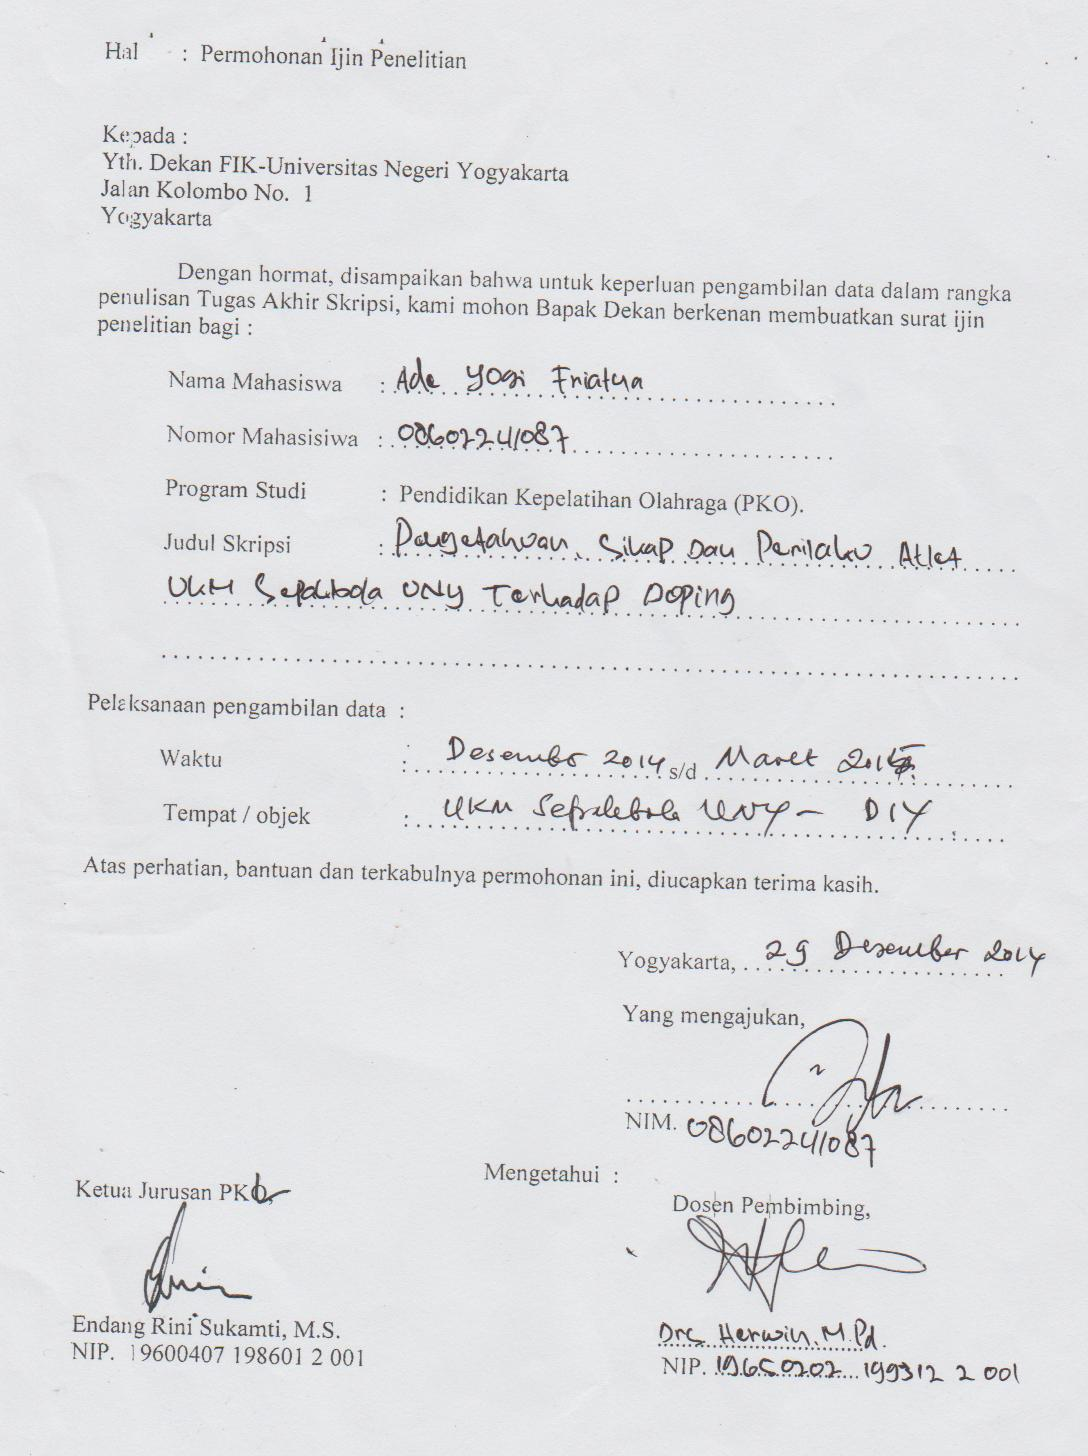 Hal : Permohonan Ijin Penelitian
Kepada :
Yth. Dekan FIK-Universitas Negeri Yogyakarta
Jalan Kolombo No. 1
Yogyakarta
Dengan hormat, disampaikan bahwa untuk keperluan pengambilan data dalam rangka
penulisan Tugas Akhir Skripsi, kami mohon Bapak Dekan berkenan membuatkan surat ijin
penelitian bagi :
Nama Mahasiswa : Ade Yogi
Nomor Mahasisiwa : 08602241087
Program Studi : Pendidikan Kepelatihan Olahraga (PKO).
Judul Skripsi : Pengetahuan, Sikap Dan Perilaku Atlet
UKM Sepakbola UNY Terhadap Doping
Pelaksanaan pengambilan data :
Waktu : Desember 2014 s/d Maret 2015.
Tempat / objek : UKM Sepakbola UNY - DIY
Atas perhatian, bantuan dan terkabulnya permohonan ini, diucapkan terima kasih.
Yogyakarta, 29 Desember 2014
Yang mengajukan,
NIM. 08602241087
Mengetahui :
Ketua Jurusan PKO,
Dosen Pembimbing,
Endang Rini Sukamti, M.S.
NIP. 19600407 198601 2 001
Drs Herwin, M.Pd.
NIP. 19650202 199312 2 001